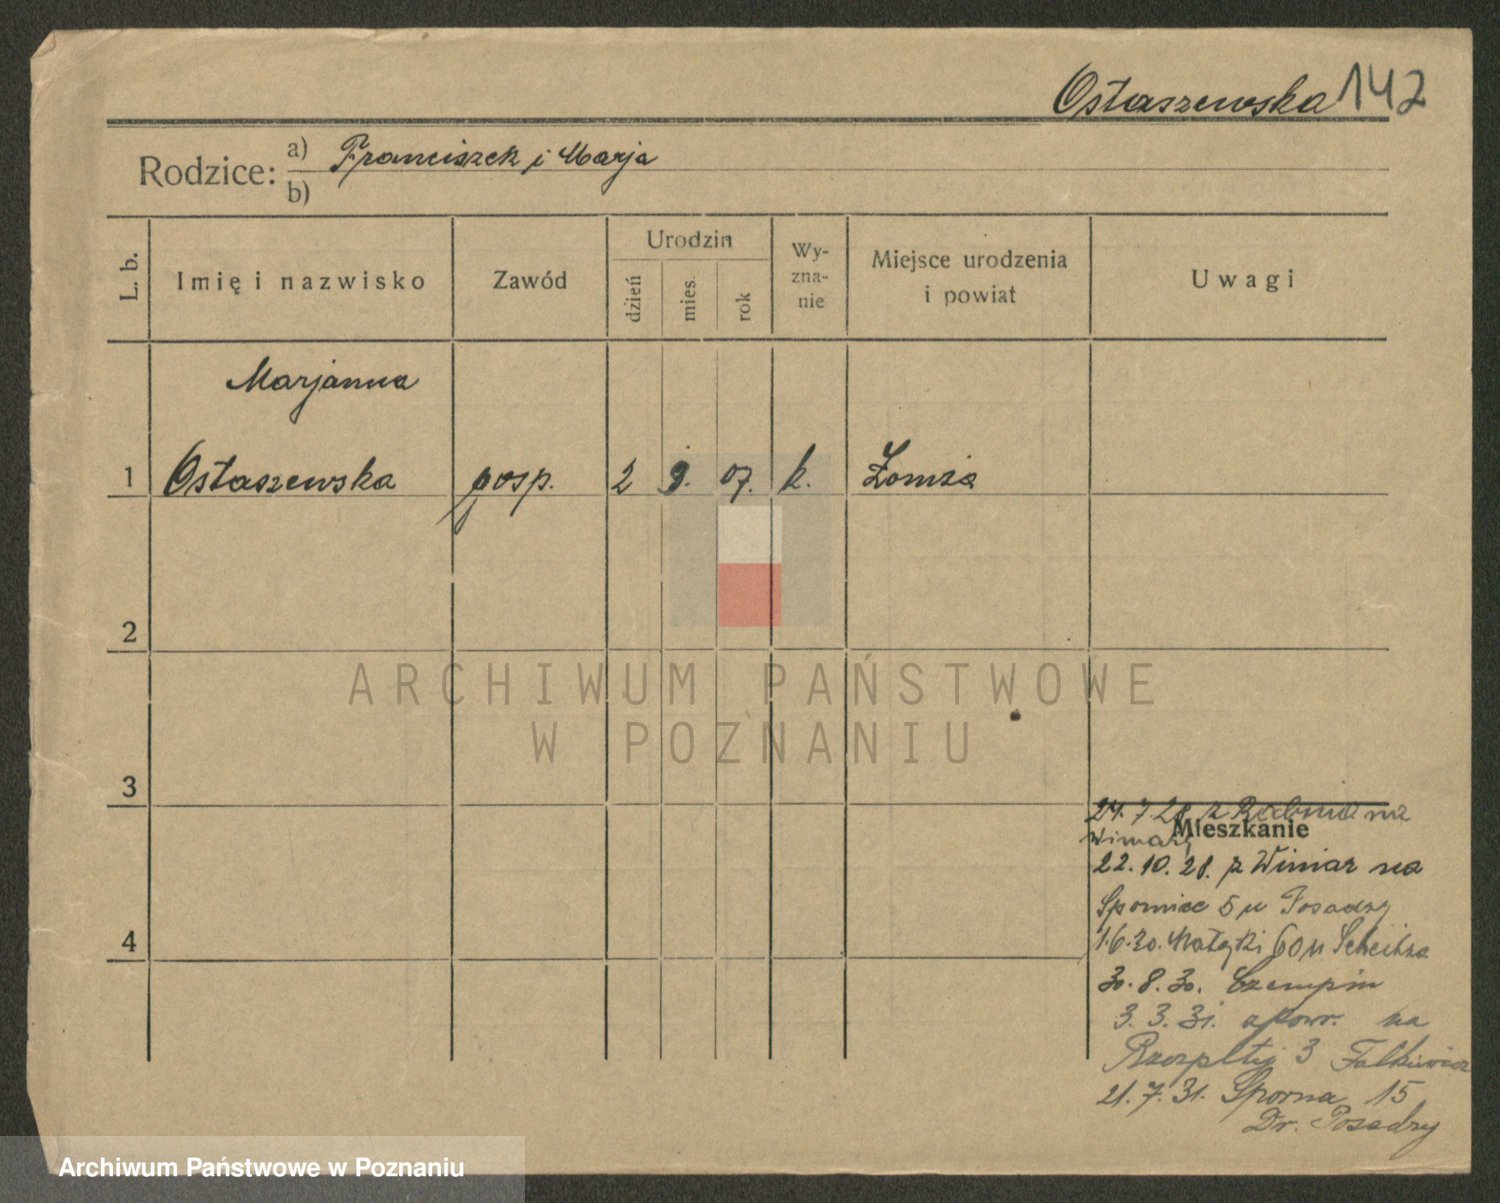 Ostaszewska 142
Rodzice: a) Franciszek i Marja
b)
L. b.
Imię i nazwisko
Zawód
Urodzin
dzień
mies.
rok
Wy-
zna-
nie
Miejsce urodzenia
i powiat
Uwagi
Marjanna
1 Ostaszewska posp. 2 9. 07. k. Łomża
2
3
4
24. 7. 28. z na
Mieszkanie
Winiary
22. 10. 28. z Winiar na
5 u Posadzy
1. 6. 30. Małeki 60 u
30. 8. 30. Czempin
3. 3. 31. z powr. na
Rzezpltej 3
21. 7. 31. Sporna 15
Dr. Posadzy
ARCHIWUM PAŃSTWOWE
W POZNANIU
Archiwum Państwowe w Poznaniu